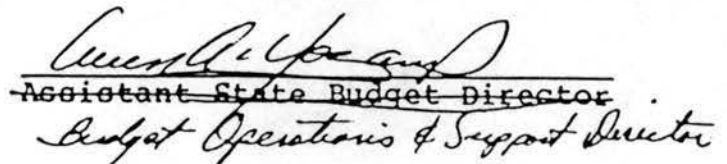 Assistant State Budget Director
Budget Operations & Support Director